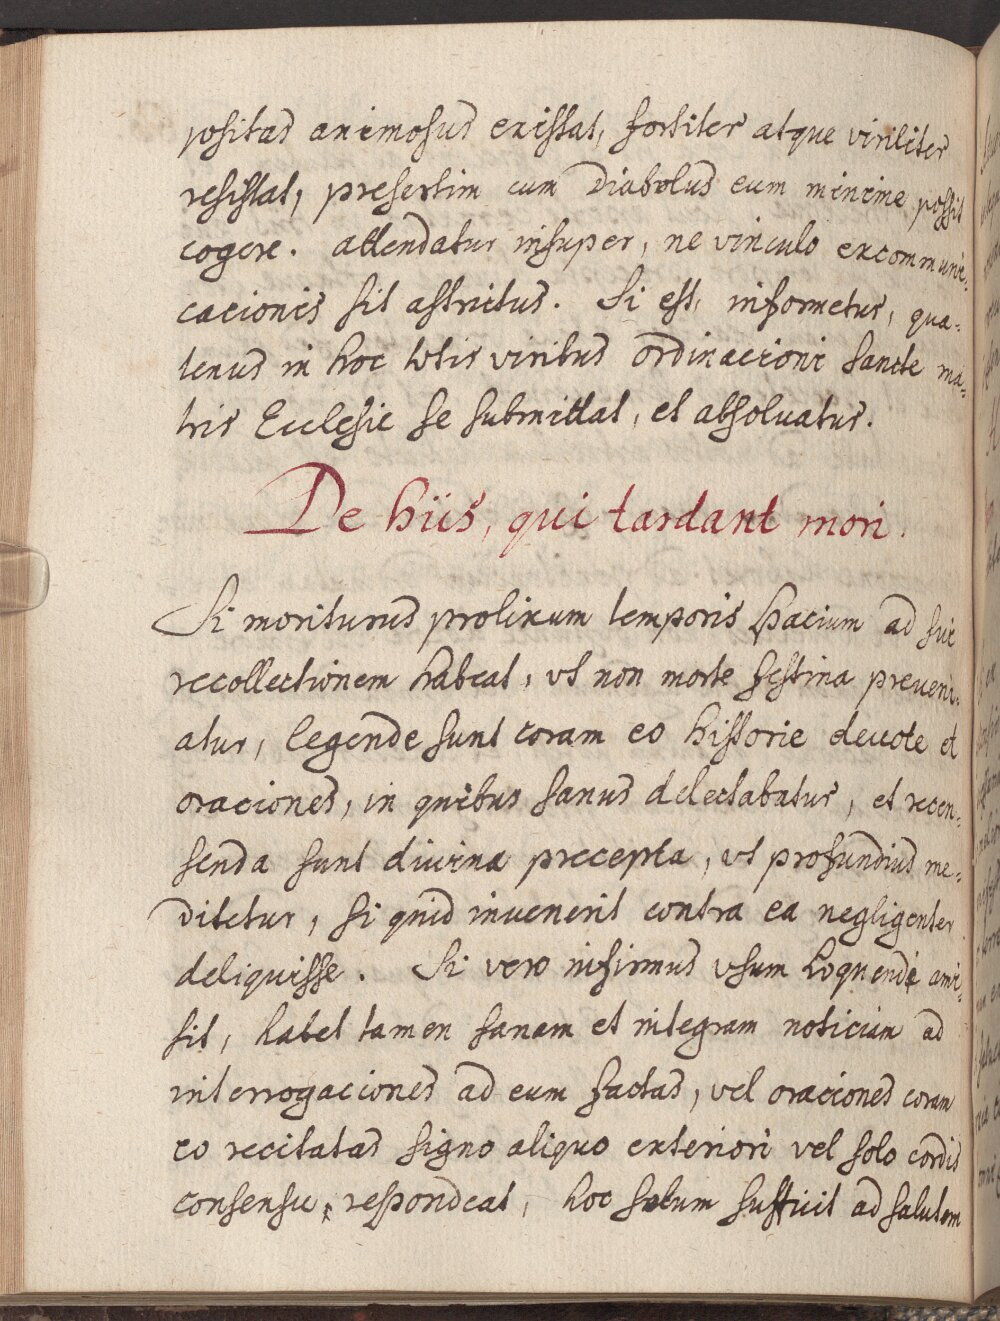 positas animosus existat, fortiter atque viriliter
resistat, presertim cum Diabolus eum minime possit
cogere. attendatur insuper, ne vinculo excommuni-
cacionis sit astrictus. Si est, informetur, qua-
tenus in hoc totis viribus ordinacioni sancte ma-
tris Ecclesie se submittat, et absoluatur.
De hiis, qui tardant mori.
Si moriturus prolixum temporis spacium ad sui
recollectionem habeat, vt non morte festina preueni-
atur, legende sunt coram eo historie deuote et
oraciones, in quibus sanus delectabatur, et recen-
senda sunt diuina precepta, vt profundius me-
ditetur, si quid inuenerit contra ea negligenter
deliquisse. Si vero infirmus vsum loquendi ami-
sit, habet tamen sanam et integram noticiam ad
interrogaciones ad eum factas, vel oraciones coram
eo recitatas signo aliquo exteriori vel solo cordis
consensu, respondeat, hoc solum sufficit ad salutem